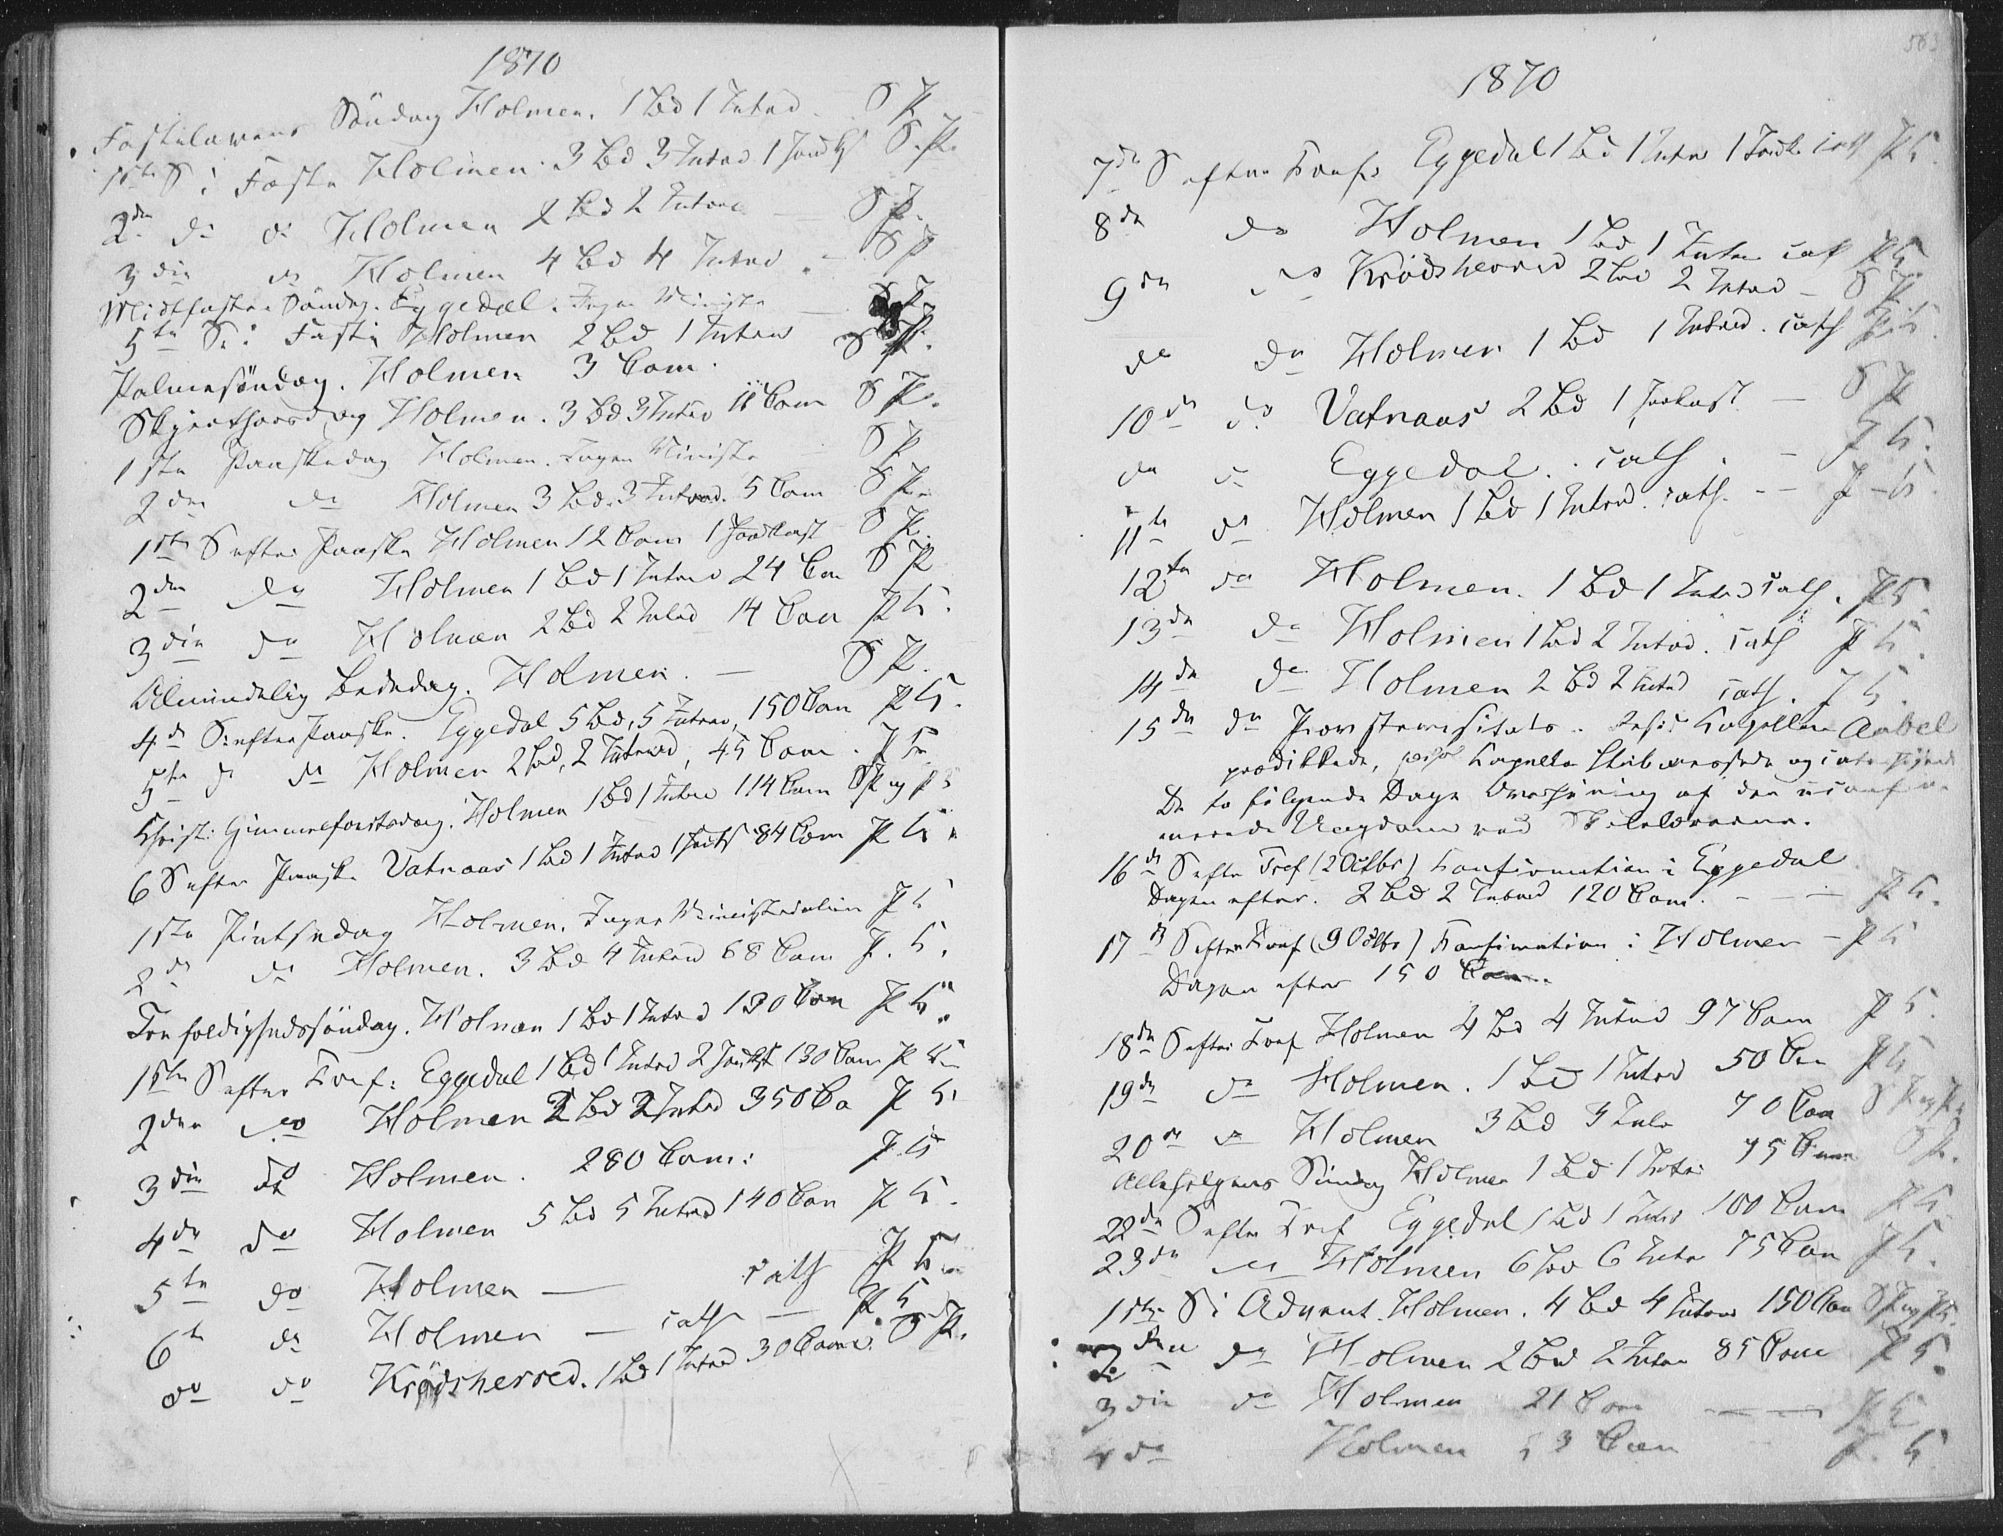 1870
Fastelavens Söndag Holmen. 1 Bd 1 Introd. S. P.
1ste S i Faste Holmen. 3 Bd 3 Introd 1 Jordk S. P.
2den do do Holmen 2 Bd 2 Introd — S. P.
3die do Holmen 4 Bd 4 Introd. — S P
Midtfaste Söndag. Eggedal. Ingen Ministr — S. P.
5te S. i Faste Holmen 2 Bd 1 Introd S P.
Palmesöndag. Holmen 3 Com. S P.
Skjærthorsdag Holmen. 3 Bd 3 Introd 11 Com S P.
1ste Paaskedag Holmen. Ingen Ministr S P.
2den do Holmen 3 Bd. 3 Introd. 5 Com S P.
1ste S efter Paaske Holmen 12 Com 1 Jordkast S P.
2den do Holmen 1 Bd 1 Introd 24 Com S P
3die do Holmen 2 Bd 2 Introd 14 Com P K.
Almindelig Bededag. Holmen. — S P.
4de S. efter Paaske. Eggedal 5 Bd, 5 Introd, 150 Com P K.
5te S do Holmen 2 Bd, 2 Introd, 45 Com. P K.
Christi Himmelfartsdag. Holmen 1 Bd 1 Introd 114 Com SP og P K
6 S efter Paaske Vatnaas 1 Bd 1 Introd 1 Jordk 84 Com P K.
1ste Pintsedag Holmen. Ingen Ministerialia P K
2d do Holmen. 3 Bd 4 Introd 68 Com P. K.
Trefoldighedssöndag. Holmen 1 Bd 1 Introd 130 Com P K.
1ste S efter Tref: Eggedal 1 Bd 1 Introd 2 Jordkst 130 Com P K.
2den do Holmen 2 Bd 2 Introd 350 Co P K.
3die do Holmen. 280 Com: P. K
4de do Holmen 5 Bd 5 Introd 140 Com P K.
5te do Holmen — cath P K.
6te do Holmen — cath — P. K
do do Krödsherred. 1 Bd 1 Introd 30 Com. S P.
1870
7de S efter Tref: Eggedal 1 Bd 1 Introd 1 Jordk cath P K.
8de do Holmen 1 Bd 1 Introd cath P K.
9de do Krödsherred 2 Bd 2 Introd — S P.
do do Holmen 1 Bd 1 Introd. cath P. K.
10de do Vatnaas 2 Bd 1 Jordkast. — S P
do do Eggedal. cath. — P K.
11te do Holmen 1 Bd 1 Introd. cath. — — P K.
12te do Holmen. 1 Bd 1 Introd cath. P K.
13de do Holmen 1 Bd 2 Introd. cath P K.
14de do Holmen 2 Bd 2 Introd cath. P K.
15de do Provstevisitats. Kapellan Aabel
prædikkede, Kapellan og
De to fölgende Dage Overhöring af den uconfir-
merede Ungdom ved Skolelærerne.
16de S efter Tref (2 Octbr) Konfirmation i Eggedal
Dagen efter. 2 Bd 2 Introd 120 Com. — — — P K.
17de S efter Tref (9 Octbr) Konfirmation i Holmen — P K
Dagen efter 150 Com.
18de S efter Tref Holmen 4 Bd 4 Introd 97 Com P K.
19de do Holmen. 1 Bd 1 Introd 50 Com P K.
20de do Holmen 3 Bd 3 Introd 70 Com S P og P K
Allehelgens Söndag Holmen 1 Bd 1 Introd 75 Com S P.
22de S efter Tref Eggedal 1 Bd 1 Introd 100 Com P K.
23de do Holmen 6 Bd 6 Introd 75 Com P K.
1ste S i Advent. Holmen. 4 Bd 4 Introd 150 Com S P og P K.
2den do Holmen 2 Bd 2 Introd 85 Com P K.
3die do Holmen 21 Com — — P K
4de Holmen 53 Com P. K.